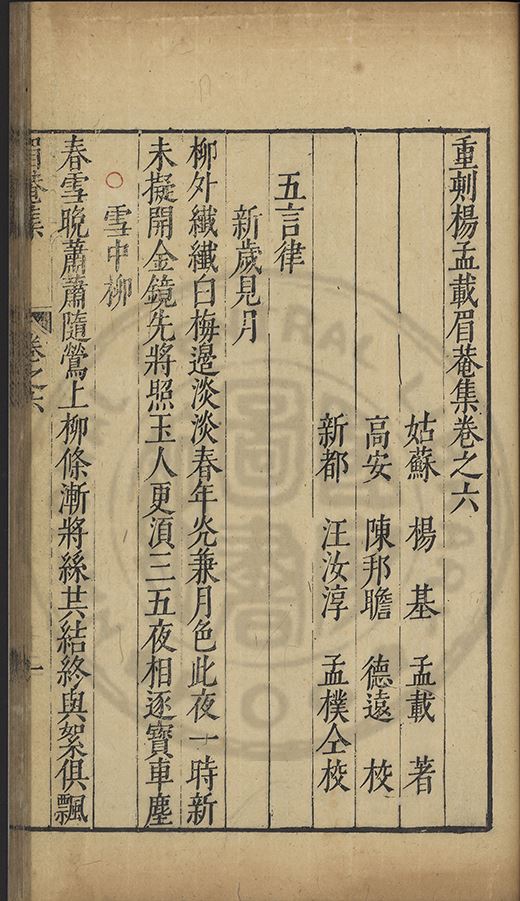 重刻楊孟載眉菴集卷之六
姑蘇 楊基 孟載 著
高安 陳邦瞻 德遠 校
新都 汪汝淳 孟樸仝校
五言律
新歲見月
柳外纖纖白梅邉淡淡春年光兼月色此夜一時新
未擬開金鏡先將照玉人更湏三五夜相逐寶車塵
雪中柳
春雪晚蕭蕭隨鶯上柳條漸將絲共結終與絮俱飄
眉菴集 卷之六 一